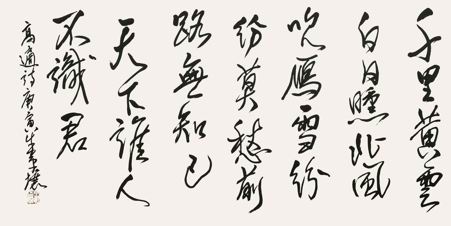 千里黄雲
白日曛北風
吹鴈雪紛
紛莫愁前
路無知己
天下誰人
不識君
高適詩庚寅